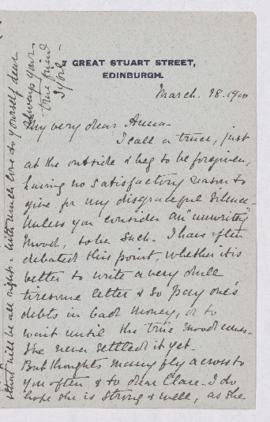 GREAT STUART STREET,
EDINBURGH.
March. 28. 1900
My very dear Anna-
I call a truce, just
at the outside & beg to be forgiven,
having no satisfactory reason to
give for my disgraceful silence-
Unless you consider an "unwriting"
mood, to be such. I have often
debated this point, whether it is
better to write a very dull
tiresome letter & so pay one's
debts in bad money, or to
wait until the true mood comes-
I've never settled it yet.
But thoughts many fly across to
you often & to dear Clare. I do
hope she is strong & well, as she
still will be all right. With much love to yourself dear
Always your
true friend